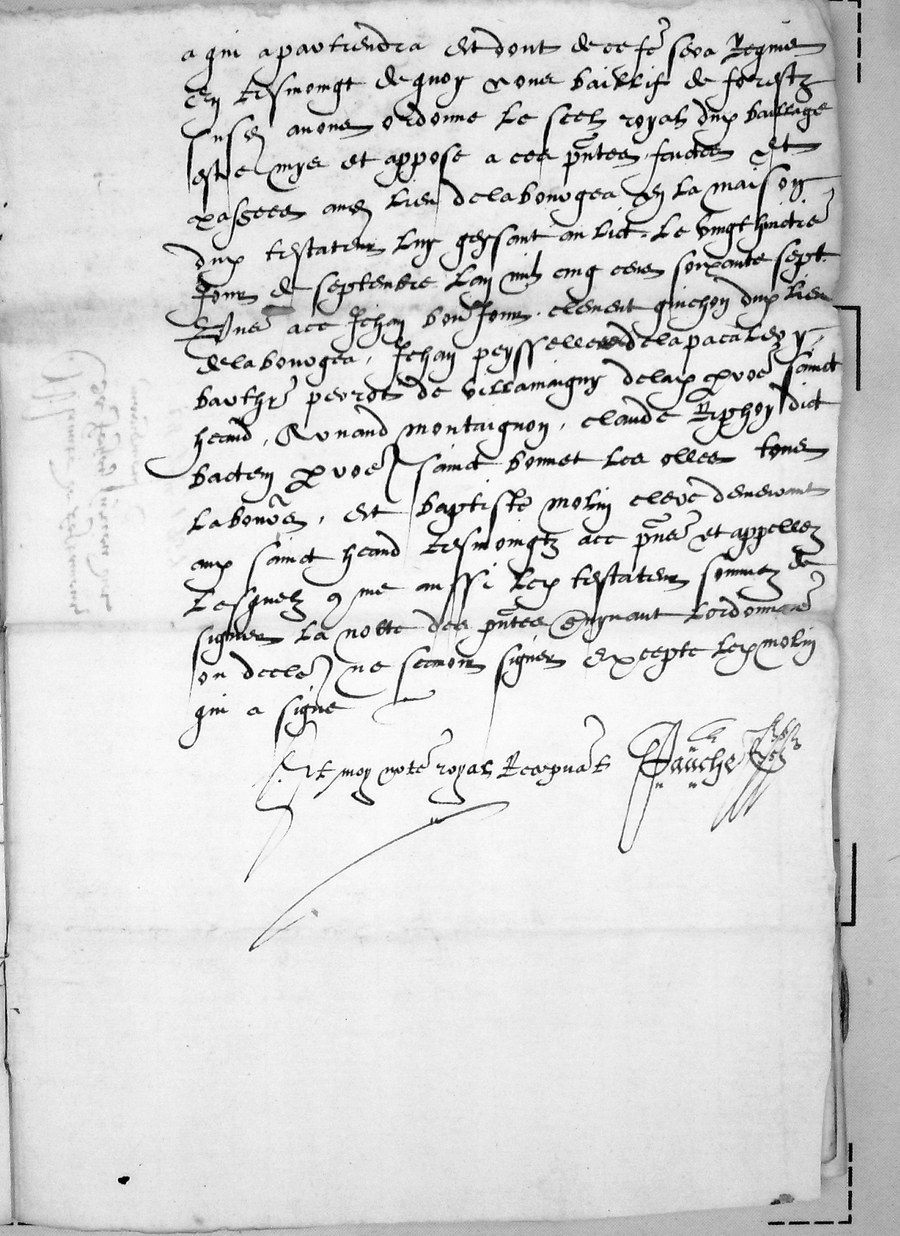 a qui apartiendra et dont de ce fe sera requis
En tesmoingt de quoy nous baillif de forestz
susd avons ordonne le seel royal dud baillage
estre mys et appose a ces pntes faictes et
passees aud lieu de la bourgea en la maison
dud testateur luy gysant au lict le vingt huictie
jour de septembre lan mil cinq cens soixante sept
pns ace Jehan bon Jour clement guichon dud lieu
de la bourgea, Jehan peysselle de la pacalery
barthy perrot de villamaigny de lad prroe sainct
heand, Annand montaignon, claude Riphon dict
bactem prroe sainct bonnet les olles tous
laboure, et baptiste molin clerc demeurant
aud sainct heand tesmoingtz ace pns et appellez
Lesquelz come aussi led testateur sommez de
signer la notte des pntes suyvant lordonnce
on declere ne scavoir signer excepte led molin
qui a signe
Et moy note royal Recepvat Fauche